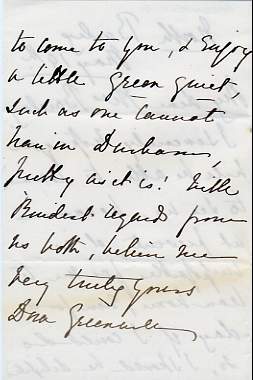 to come to you, & enjoy
a little green quiet,
such as one cannot
have in Durham,
pretty as it is! With
Kindest regards from
us both, believe me
very truly yours
Dora Greenwell